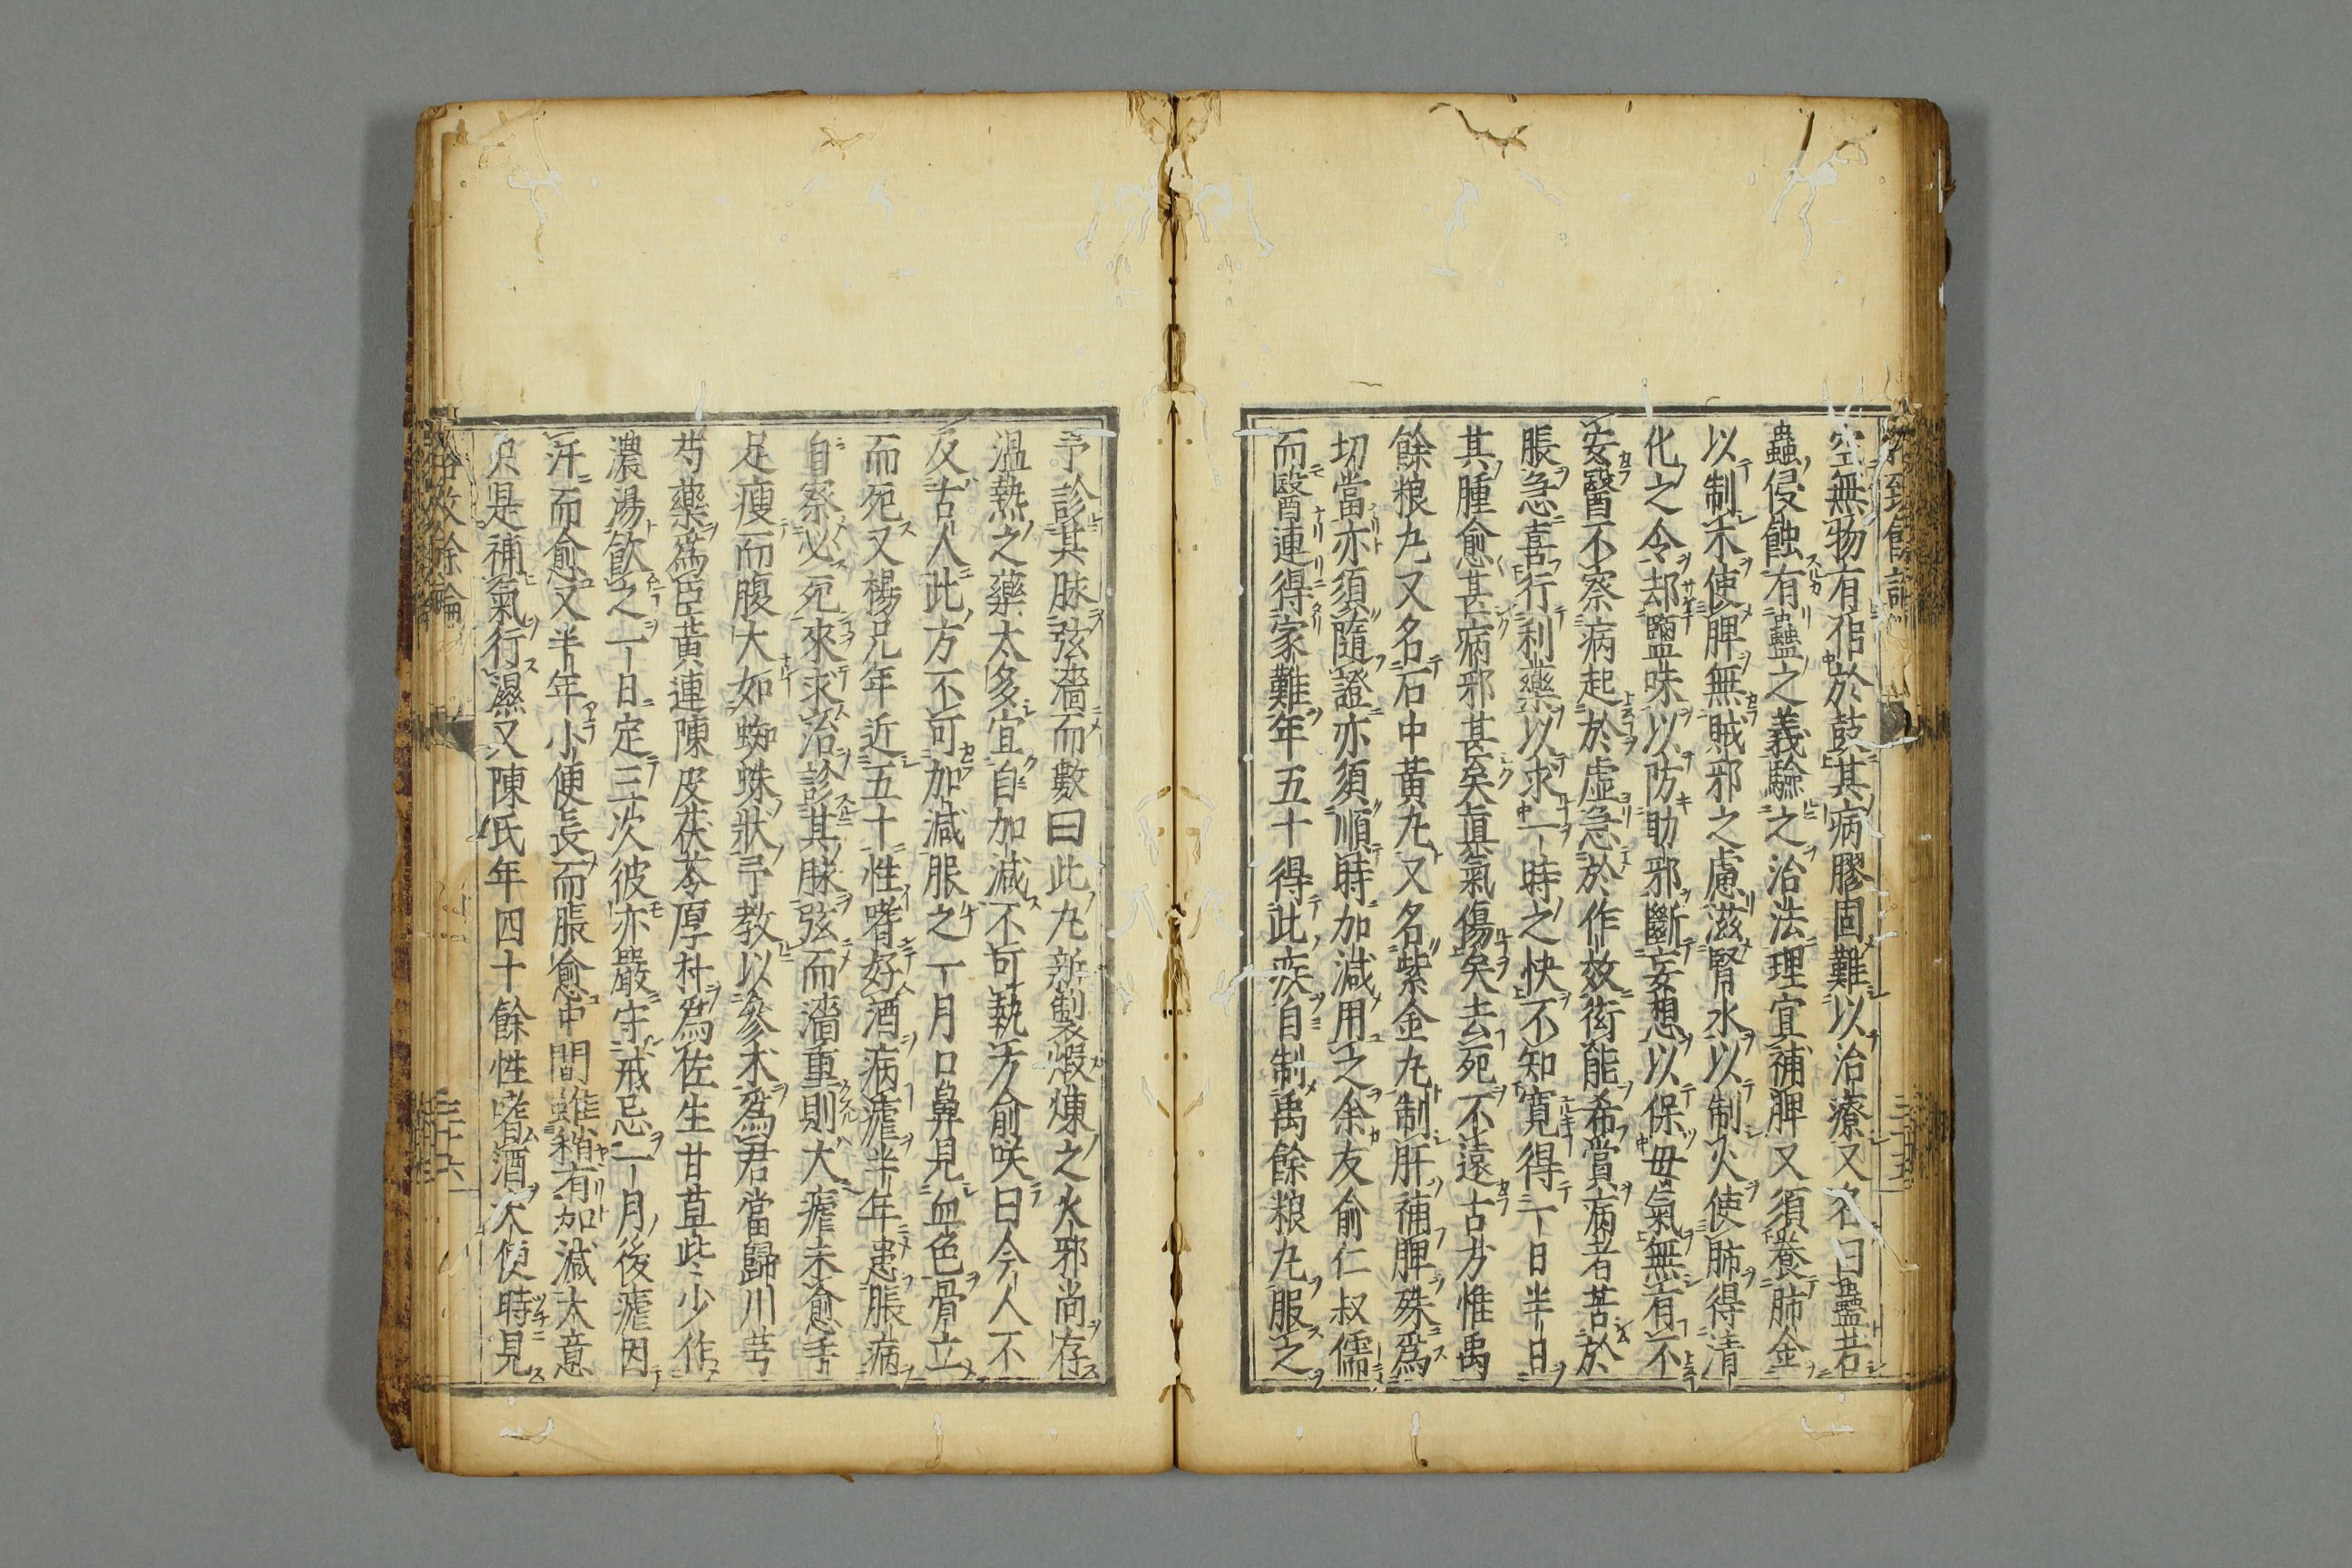 空無物有佀於鼓其病膠固難以治療又名曰蠱若
蟲侵蝕有蠱之義驗之治法理宜補脾又須養肺金
以制木使脾無賊邪之慮滋腎水以制火使肺得清
化之令却鹽味以防助邪斷妄想以保毋氣無有不
安醫不察病起於虛急於作效衒能希賞病者苦於
脹急喜行利藥以求一時之快不知寬得一日半日
其腫愈甚病邪甚矣真氣傷矣去死不遠古方惟禹
餘粮丸又名石中黃丸又名紫金丸制肝補脾殊爲
切當亦須隨證亦須順時加減用之余友俞仁叔儒
而醫連得家難年五十得此疾自制禹餘粮丸服之
予診其脉弦濇而數曰此丸新製煆煉之火邪尚存
溫熱之藥太多宜自加減不可執方俞咲曰今人不
及古人此方不可加減服之一月口鼻見血色骨立
而死又楊兄年近五十性嗜好酒病瘧半年患脹病
自察必死來求治診其脉弦而濇重則大瘧未愈手
足瘦而腹大如蜘蛛狀予教以參术爲君當歸川芎
芍藥爲臣黃連陳皮茯苓厚朴爲佐生甘草些少作
濃湯飲之一日定三次彼亦嚴守戒忌一月後瘧因
汗而愈又半年小便長而脹愈中間雖稍有加減大意
只是補氣行濕又陳氏年四十餘性嗜酒大便時見
格致餘論
三十六
三十五